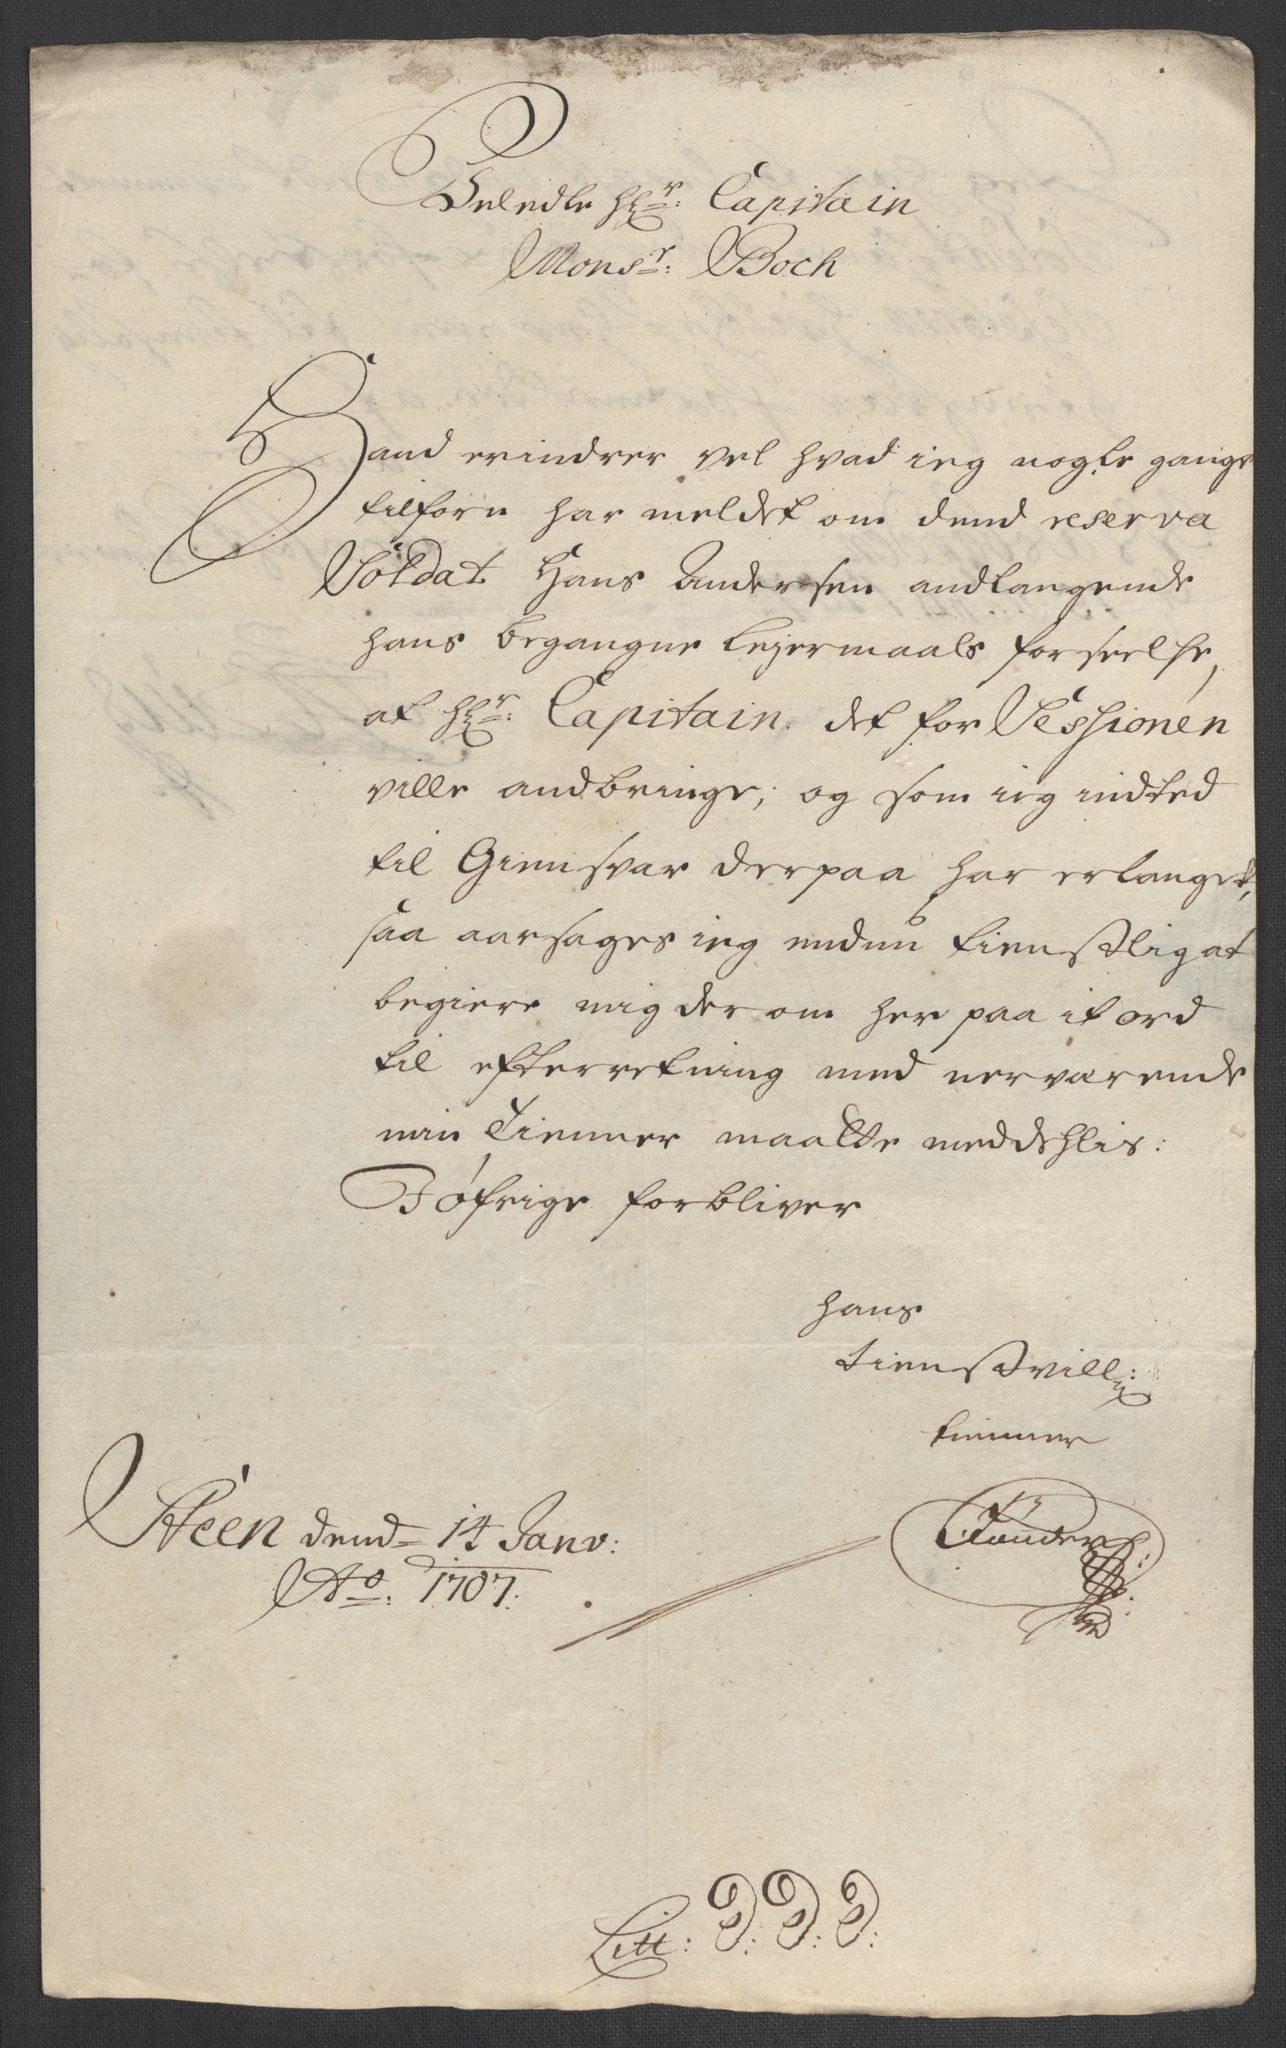 Veledle Hr: Capitain
Monsr: Boch
Hand erindrer vel hvad ieg nogle gange
tilforn har meldet om dend reserva
Soldat Hans Andersen andlangende
hans begangne leyermaals forseelse,
at Hr: Capitain det for Sessionen
ville andbringe; og som ieg indted
til Giensvar derpaa har erlanget,
saa aarsages ieg endnu tienstlig at
begiere mig der om her paa it ord
til efterretning med nerværende
min Tienner maatte meddehlis:
I øfrige forbliver
Hans
tienstvill:
tienner
Steen dend 14 Janv:
Ao: 1707.
Litt: D: D: D: